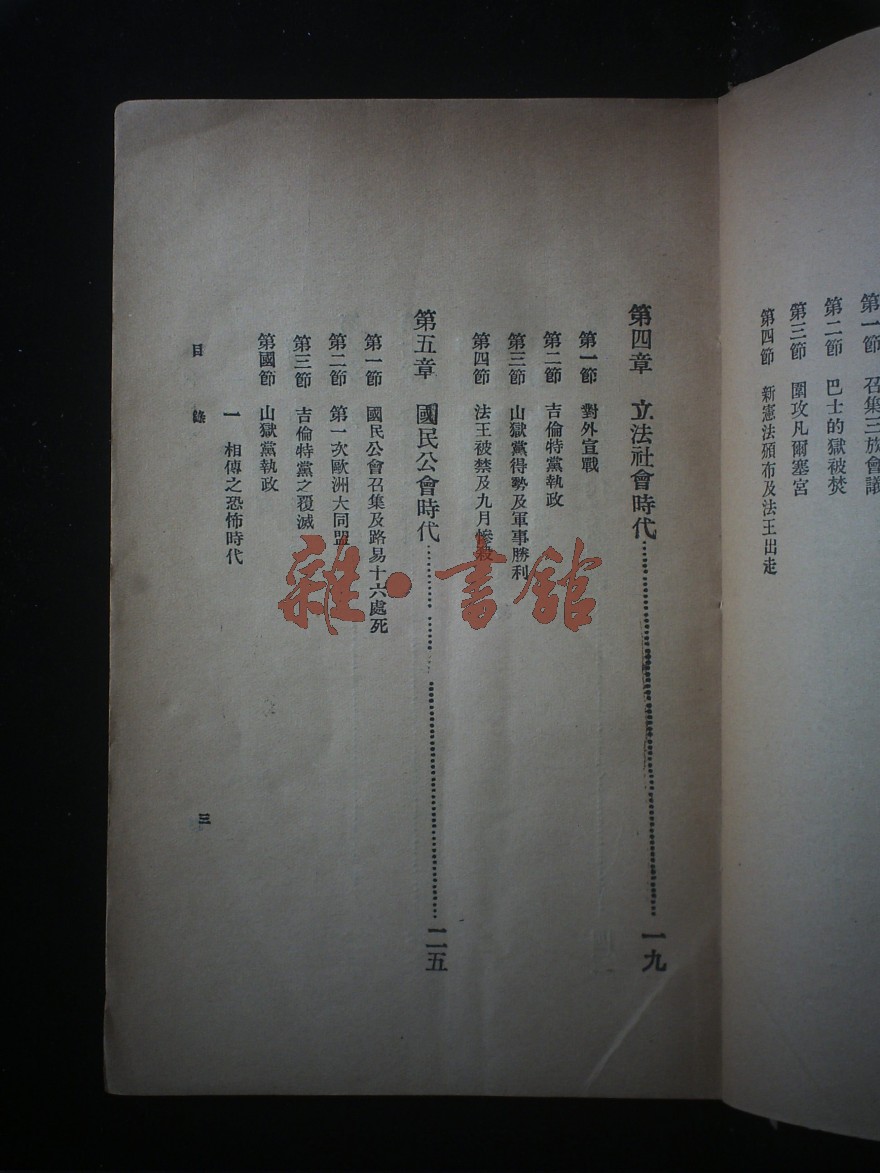 第一節 召集三族會議
第二節 巴士的獄被焚
第三節 圍攻凡爾塞宮
第四節 新憲法頒布及法王出走
第四章 立法社會時代……一九
第一節 對外宣戰
第二節 吉倫特黨執政
第三節 山獄黨得勢及軍事勝利
第四節 法王被禁及九月慘殺
第五章 國民公會時代……二五
第一節 國民公會召集及路易十六處死
第二節 第一次歐洲大同盟
第三節 吉倫特黨之覆滅
第國節 山獄黨執政
一 相傳之恐怖時代
目 錄
三
雜·書館